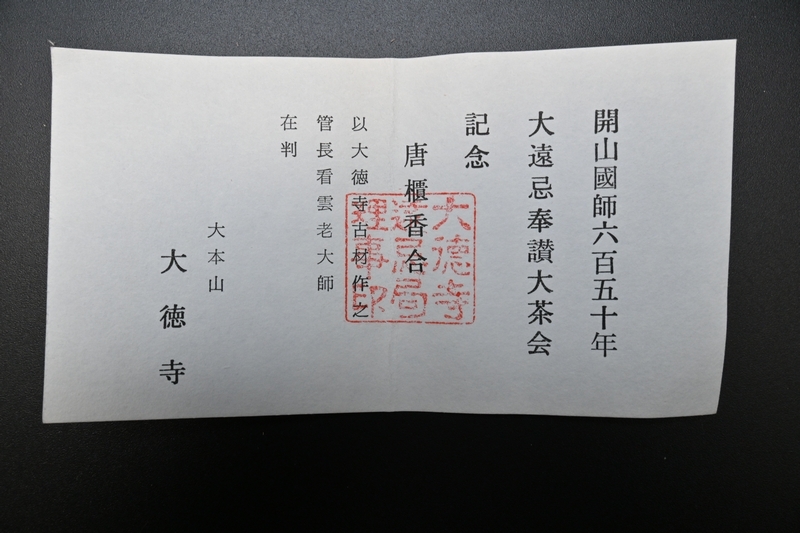 開山國師六百五十年
大遠忌奉讃大茶会
記念
唐櫃香合
以大徳寺古材作之
管長看雲老大師
在判
大本山
大徳寺
大德寺
遠忌局
理事印